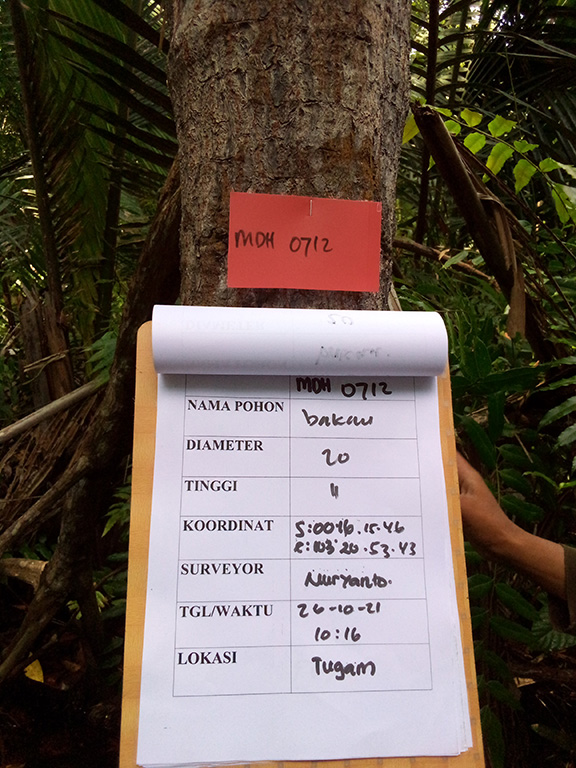 MDH 0712
MDH 0712
NAMA POHON bakau
DIAMETER 20
TINGGI 11
KOORDINAT S:00
E:103°20.53.43
SURVEYOR Nuryanto.
TGL/WAKTU 26-10-21
10:16
LOKASI Tugam